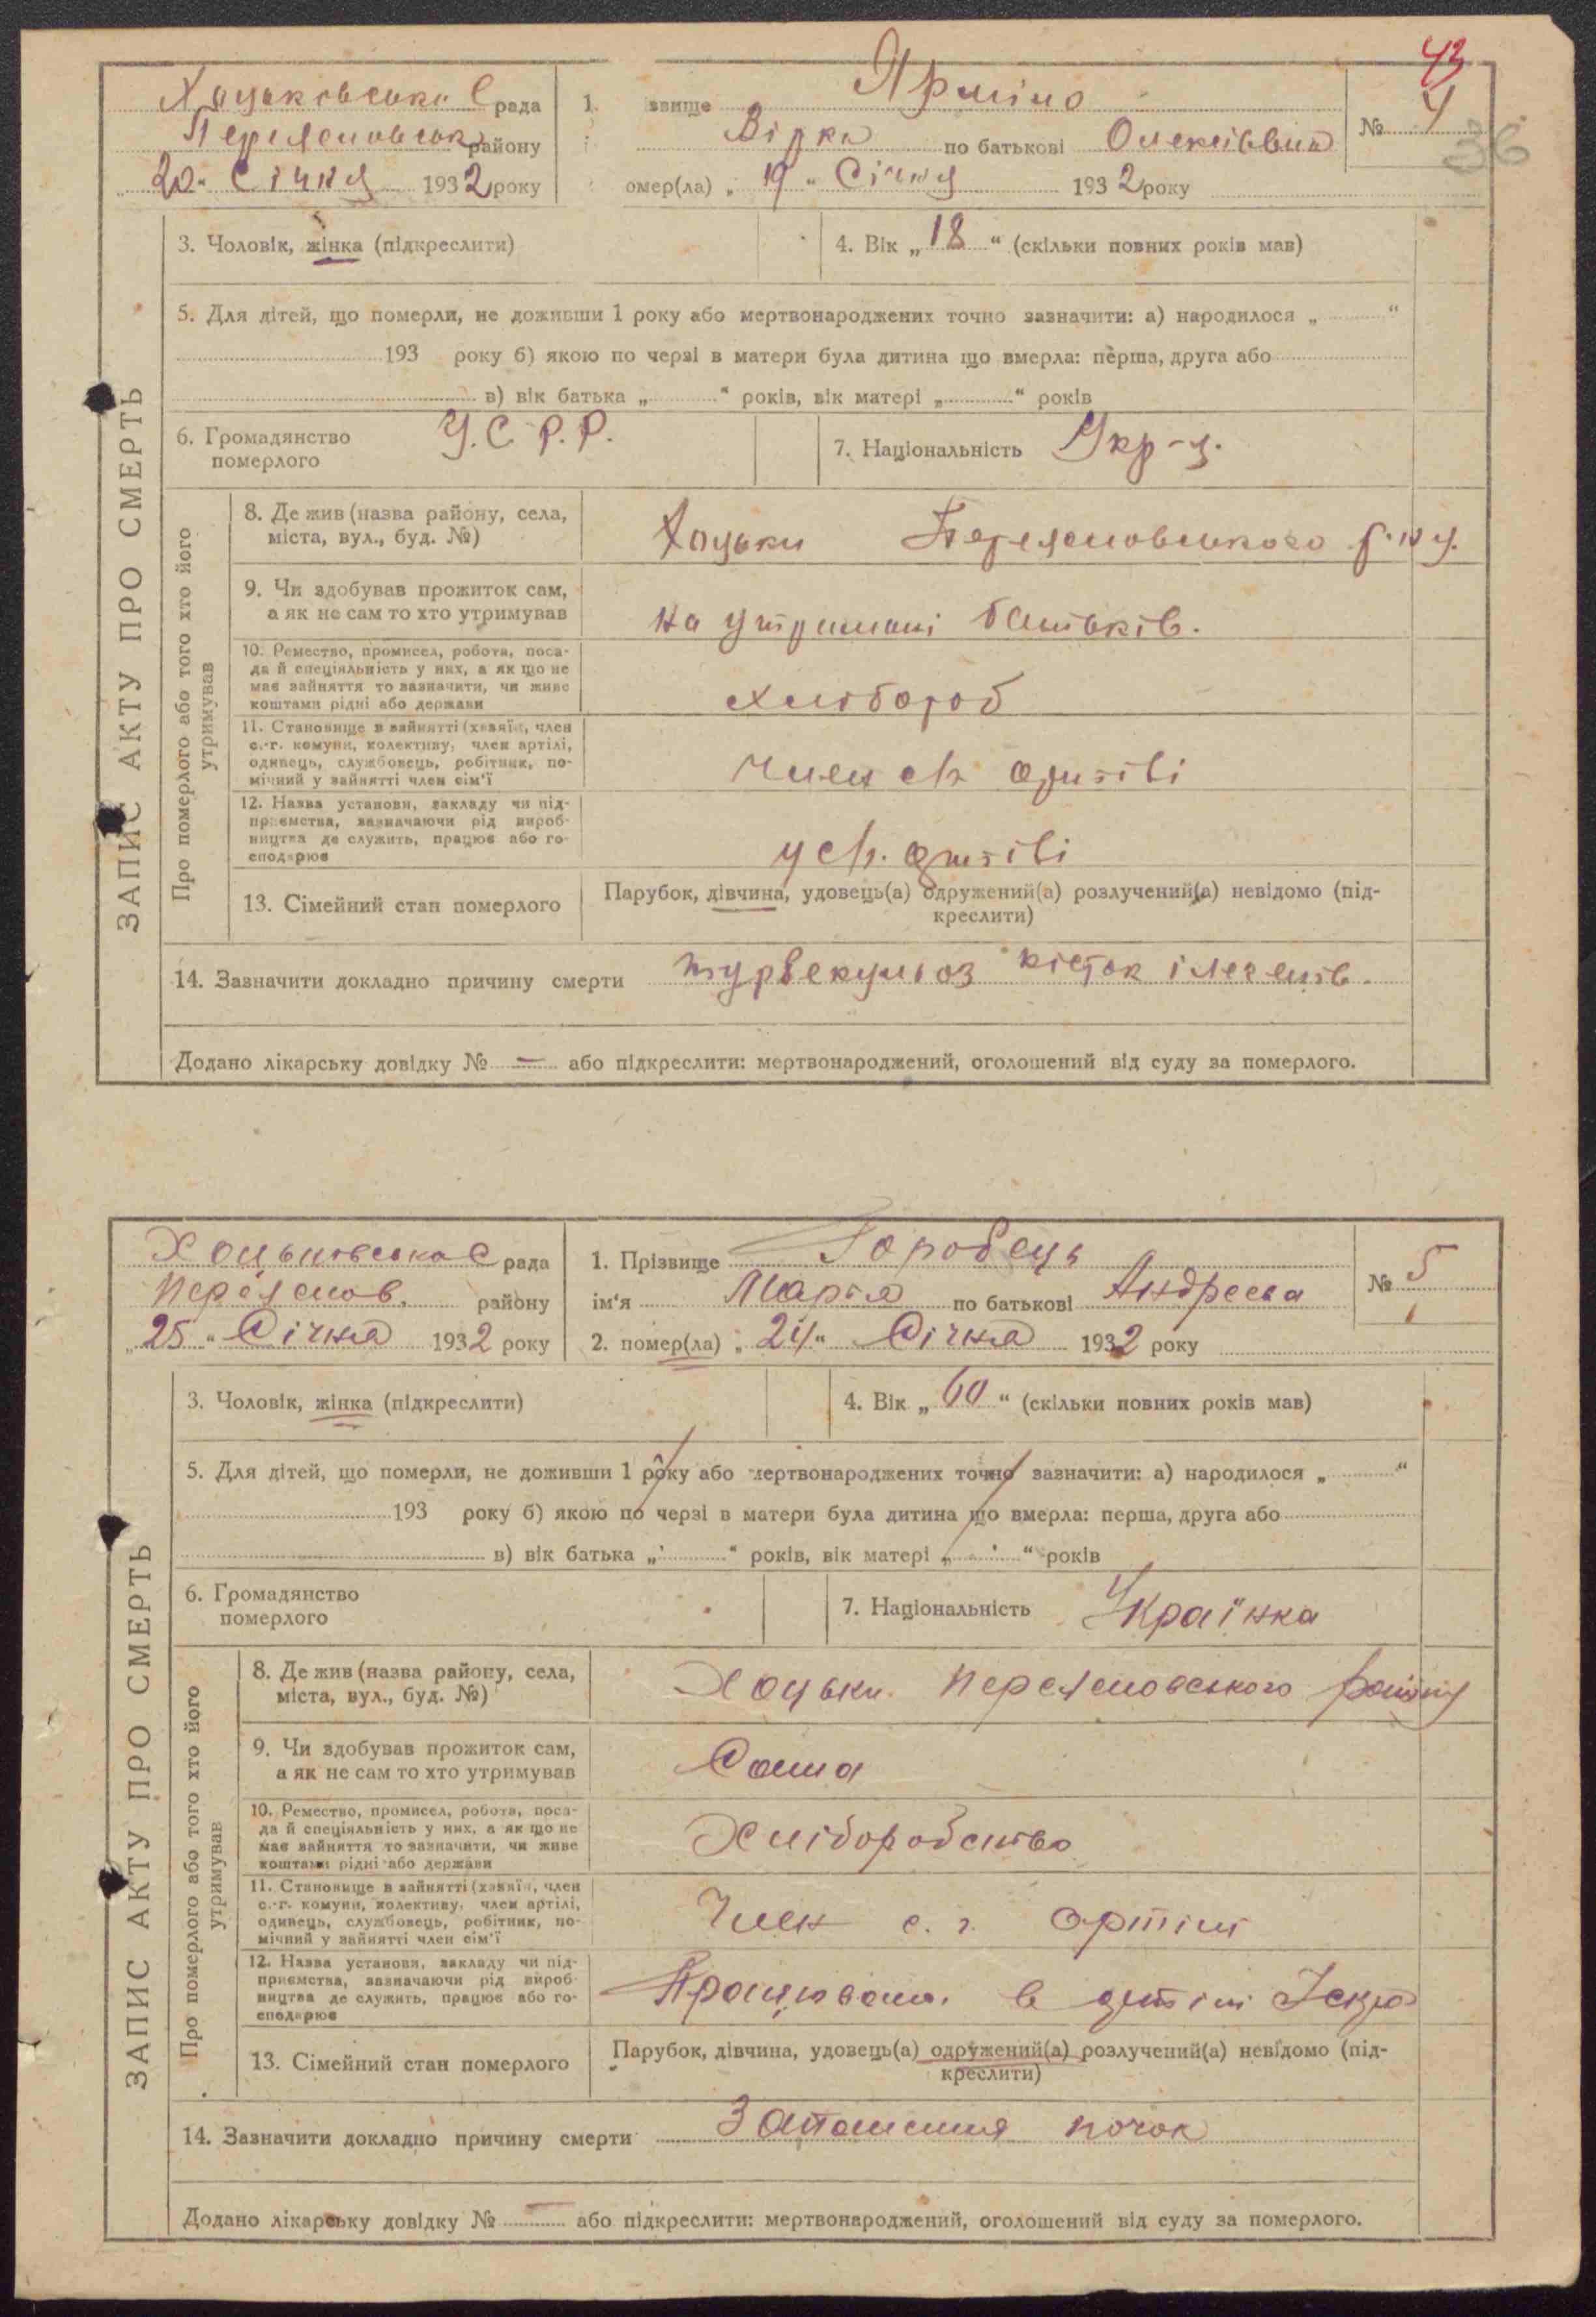 43
36
Хоцьківська С рада
Переяславськ району
„20“ Січня 1932 року
1. звище Ярміло
Вірка по батькові Олексіївна
омер(ла) „19“ Січня 1932 року
№ 4
ЗАПИС АКТУ ПРО СМЕРТЬ
3. Чоловік, жінка (підкреслити)
4. Вік „18“ (скільки повних років мав)
5. Для дітей, що померли, не доживши 1 року або мертвонароджених точно зазначити: а) народилося „ “
193 року б) якою по черзі в матери була дитина що вмерла: перша, друга або
в) вік батька „ “ років, вік матері „ “ років
6. Громадянство
померлого
У.С.Р.Р.
7. Національність Укр-ц.
Про померлого або того хто його
утримував
8. Де жив (назва району, села,
міста, вул., буд. №)
Хоцьки Переяславського р-ну.
9. Чи здобував прожиток сам,
а як не сам то хто утримував
на утримані батьків.
10. Ремество, промисел, робота, поса-
да й спеціяльність у них, а як що не
має зайняття то зазначити, чи живе
коштами рідні або держави
хлібороб
11. Становище в зайнятті (хазяїн, член
с.-г. комуни, колективу, член артілі,
одинець, службовець, робітник, по-
мічний у зайнятті член сім'ї
член с/г артілі
12. Назва установи, закладу чи під-
приємства, зазначаючи рід вироб-
ництва де служить, працює або го-
сподарює
у с/г. артілі
13. Сімейний стан померлого
Парубок, дівчина, удовець(а) одружений(а) розлучений(а) невідомо (під-
креслити)
14. Зазначити докладно причину смерти турвекульоз кісток і легенів.
Додано лікарську довідку № — або підкреслити: мертвонароджений, оголошений від суду за померлого.
Хоцьківська С рада
Переяслов. району
„25“ Січня 1932 року
1. Прізвище Горобець
ім'я Марія по батькові Андреєва
2. помер(ла) „24“ Січня 1932 року
№ 5
ЗАПИС АКТУ ПРО СМЕРТЬ
3. Чоловік, жінка (підкреслити)
4. Вік „60“ (скільки повних років мав)
5. Для дітей, що померли, не доживши 1 року або мертвонароджених точно зазначити: а) народилося „ “
193 року б) якою по черзі в матери була дитина що вмерла: перша, друга або
в) вік батька „ “ років, вік матері „ “ років
6. Громадянство
померлого
7. Національність Українка
Про померлого або того хто його
утримував
8. Де жив (назва району, села,
міста, вул., буд. №)
Хоцьки Переяславського району
9. Чи здобував прожиток сам,
а як не сам то хто утримував
Сама
10. Ремество, промисел, робота, поса-
да й спеціяльність у них, а як що не
має зайняття то зазначити, чи живе
коштами рідні або держави
Хліборобство
11. Становище в зайнятті (хазяїн, член
с.-г. комуни, колективу, член артілі,
одинець, службовець, робітник, по-
мічний у зайнятті член сім'ї
Член с. г. артілі
12. Назва установи, закладу чи під-
приємства, зазначаючи рід вироб-
ництва де служить, працює або го-
сподарює
Працювала в артілі Іскра
13. Сімейний стан померлого
Парубок, дівчина, удовець(а) одружений(а) розлучений(а) невідомо (під-
креслити)
14. Зазначити докладно причину смерти Запалення почок
Додано лікарську довідку № — або підкреслити: мертвонароджений, оголошений від суду за померлого.